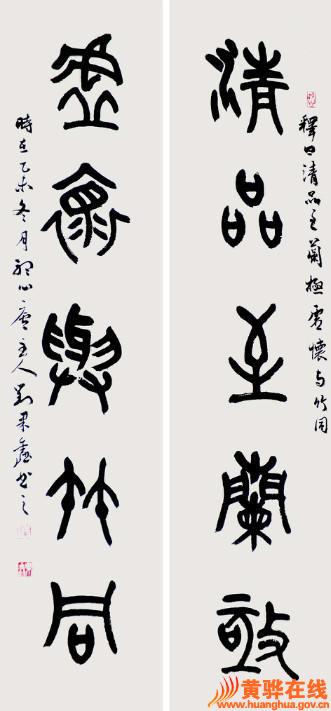 釋曰清品至蘭極虛懷与竹同
清品至蘭極
虛懷與竹同
時在乙未冬月心主人劉书之
黄骅在线
www.huanghua.gov.cn